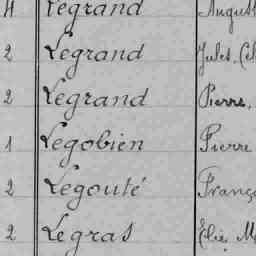 4 Legrand August
2 Legrand Jules, Cél
2 Legrand Pierre,
1 Legobien Pierre
2 Legouté Franç
2 Legras Elie, M